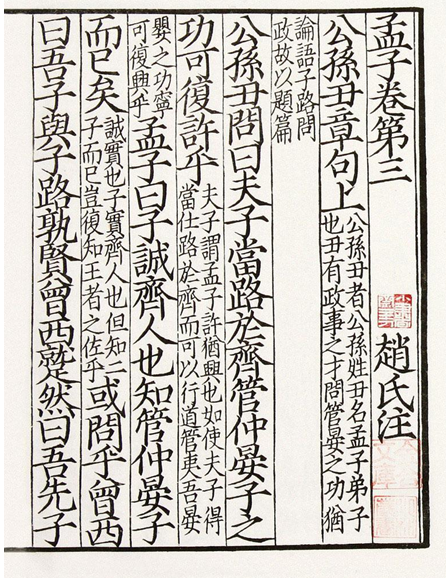 孟子卷第三
趙氏注
公孫丑章句上
公孫丑者公孫姓丑名孟子弟子
也丑有政事之才問管晏之功猶
論語子路問
政故以題篇
公孫丑問曰夫子當路於齊管仲晏子之
功可復許乎
夫子謂孟子許猶興也如使夫子得
當仕路於齊而可以行道管夷吾晏
嬰之功寧
可復興乎
孟子曰子誠齊人也知管仲晏子
而已矣
誠實也子實齊人也但知二
子而已豈復知王者之佐乎
或問乎曾西
曰吾子與子路孰賢曾西蹵然曰吾先子